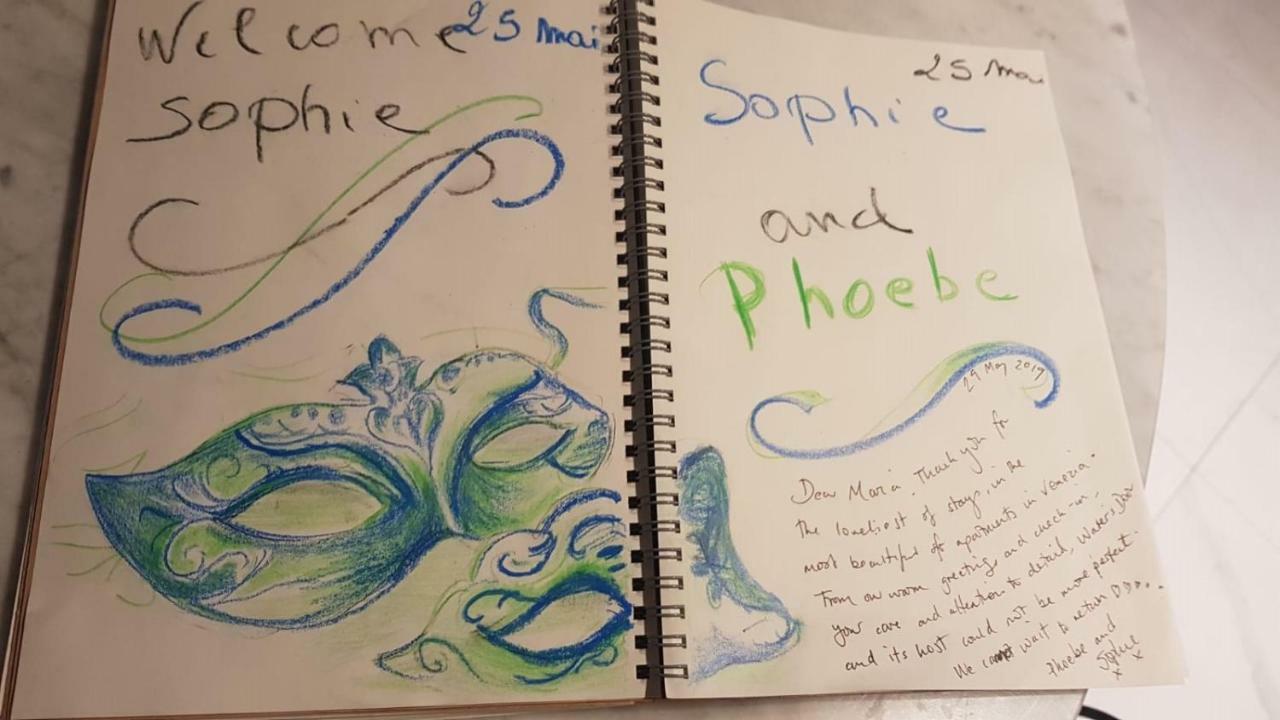 Welcome 25 Mai
Sophie
25 Ma
Sophie
and
Phoebe
29 May 2019
Dear Maria. Thank you for
the loveliest of stays, in the
most beautiful of apartments in Venezia.
From our warm greetings and check-in,
your care and attention to detail, Water's Door
and its host could not be more perfect.
We wait to return
Phoebe and
Sophie
x x